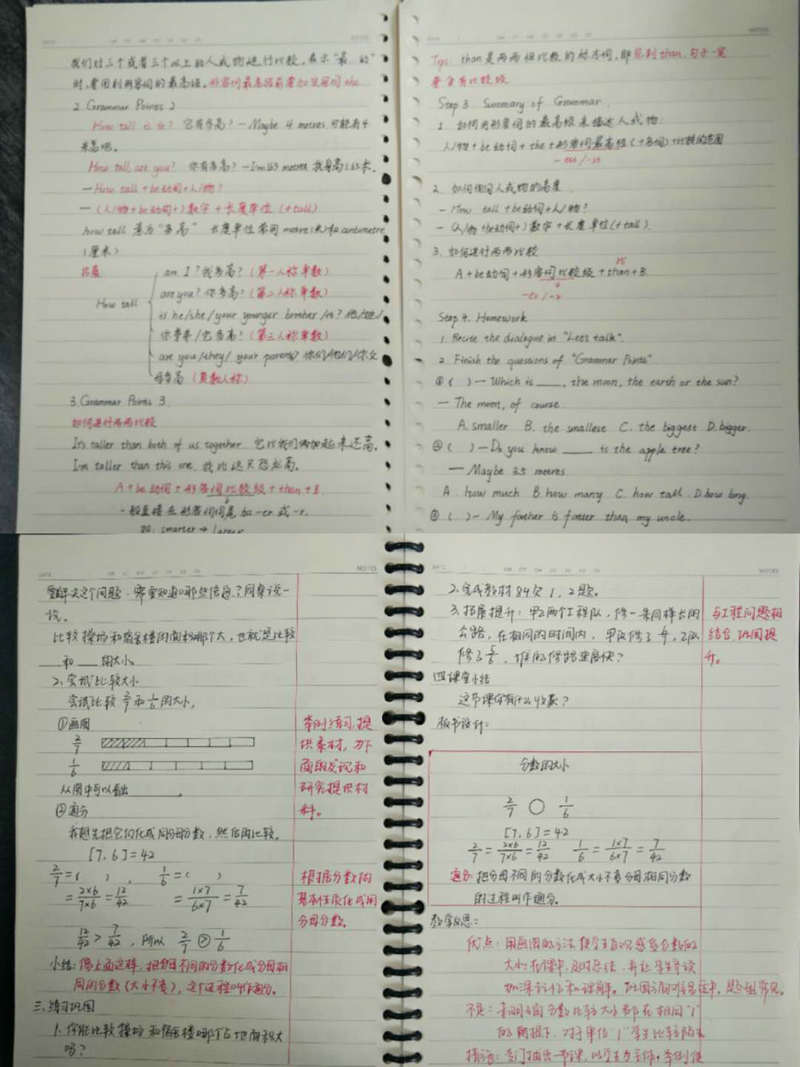 我们对三个或者三个以上的人或物进行比较，表示"最…的"
时，要用到形容词的最高级。形容词最高级前要加定冠词the.
2. Grammar Points 2
How tall is it? 它有多高? — Maybe 4 metres. 可能有4
米高吧。
How tall are you? 你有多高? — I'm 1.65 metres. 我身高1.65米.
— How tall + be动词 + 人/物?
— (人/物 + be动词 +) 数字 + 长度单位 (+ tall)
how tall 意为"多高" 长度单位常用 metre (米) 和 centimetre
(厘米)
拓展
am I? 我多高? (第一人称单数)
are you? 你多高? (第二人称单数)
How tall
is he/she/your younger brother/it? 他/她/
你弟弟/它多高? (第三人称单数)
are you/they/your parents? 你们/他们/你父
母多高 (复数人称)
3. Grammar Points 3
如何进行两两比较
It's taller than both of us together. 它比我们俩加起来还高。
I'm taller than this one. 我比这只恐龙高。
A + be动词 + 形容词比较级 + than + B.
一般直接在形容词词尾加 -er 或 -r.
如: smarter → larger
Tips: than是两两相比较的标志词, 即见到than, 句子一定
要含有比较级
Step 3. Summary of Grammar
1. 如何用形容词的最高级来描述人或物
人/物 + be动词 + the + 形容词最高级 (+名词) + 比较的范围
- est / -st
2. 如何询问人或物的高度
— How tall + be动词 + 人/物?
— (人/物 + be动词 +) 数字 + 长度单位 (+ tall).
3. 如何进行两两比较
A + be动词 + 形容词比较级 + than + B
-er / -r
Step 4. Homework
1. Recite the dialogue in "Let's talk".
2. Finish the questions of "Grammar Points"
① ( ) — Which is ____, the moon, the earth or the sun?
— The moon, of course.
A. smaller B. the smallest C. the biggest D. bigger.
② ( ) — Do you know ____ is the apple tree?
— Maybe 3.5 metres.
A. how much B. how many C. how tall D. how long.
③ ( ) — My father is faster than my uncle.
要解决这个问题, 需要知道哪些信息? 同桌说一
说。
比较操场和宿舍楼的面积哪个大, 也就是比较
___和___的大小。
2. 尝试比较大小
尝试比较 2/7 和 1/6 的大小。
①画图
2/7
1/6
从图中可以看出________。
②通分
我想先把它们化成同分母分数, 然后再比较。
[7,6]=42
2/7=( ), 1/6=( )
=2×6/7×6=12/42 =1×7/6×7=7/42
12/42>7/42, 所以 2/7 > 1/6
小结: 像上面这样, 把分母不同的分数化成分母相
同的分数 (大小不变), 这个过程叫作通分。
三、练习巩固
1. 你能比较操场和宿舍楼哪个占地面积大
吗?
举例练习, 提
供素材, 为下
面的发现和
研究提供材
料。
根据分数的
基本性质化成同
分母分数。
2. 完成教材84页1、2题。
3. 拓展提升: 甲乙两个工程队, 修一条同样长的
公路, 在相同的时间内, 甲队修了, 乙队
修了, 谁的修路速度快?
与工程问题相
结合, 巩固提
升。
四、课堂小结
这节课你有什么收获?
板书设计:
分数的大小
2/7 ○ 1/6
[7,6]=42
2/7=2×6/7×6=12/42 1/6=1×7/6×7=7/42
通分: 把分母不同的分数化成大小不变分母相同分数
的过程叫作通分。
教学反思:
优点: 用画图的方法, 使学生直观感受分数的
大小, 在课中, 及时总结, 并让学生齐读
加深记忆和理解。
不足:
措施: 专门抽出一节课, 以学生为主体, 举例使